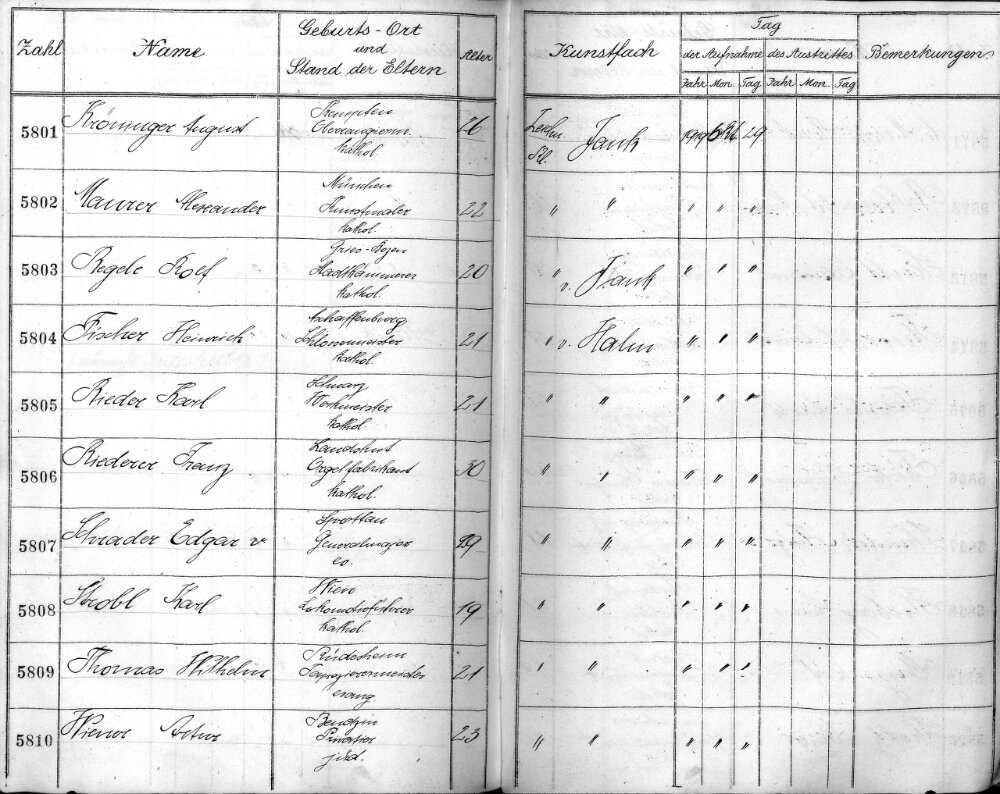 Zahl
Name
Geburts-Ort
und
Stand der Eltern
Alter
Kunstfach
Tag
der Aufnahme des Austrittes
Jahr Mon. Tag Jahr Mon. Tag
Bemerkungen
5801 Kröninger August
Kempten
katkol.
26
Jank
1919 Okt. 29
5802 Maurer Alexander
München
Kunstmaler
kathol.
22
" " " " "
5803 Regele Rolf
Gries-Bozen
Stadtkämmerer
kathol.
20
" v. Jank " " "
5804 Fischer Heinrich
Aschaffenburg
Schlossermeister
kathol.
21
" v. Halm " " "
5805 Rieder Karl
Schwaz
Werkmeister
kathol.
21
" " " " "
5806 Riederer Franz
Landshut
Orgelfabrikant
kathol.
30
" " " " "
5807 Schrader Edgar v.
Sprottau
Generalmajor
ev.
29
" " " " "
5808 Strobl Karl
Wien
Lokomotivführer
kathol.
19
" " " " "
5809 Thomas Wilhelm
Rüdesheim
evang
21
" " " " "
5810 Wiener Artur
Privatier
jüd.
23
" " " " "